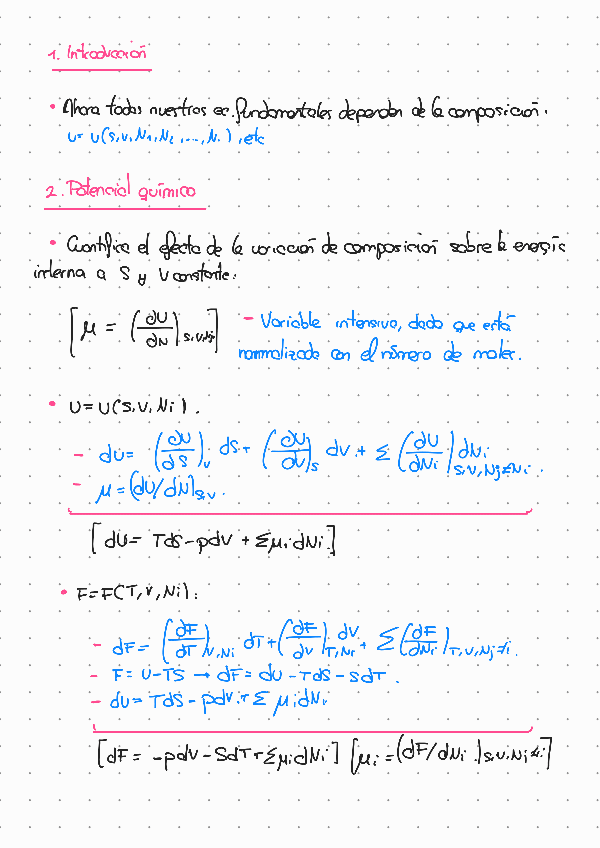 1. Introducción
• Ahora todas nuestras ec. fundamentales dependen de la composición.
U = U(S,V,N1,N2,...,N.), etc
2. Potencial químico
• Cuantifica el efecto de la variación de composición sobre la energía
interna a S y V constante.
[μ = (dU/dN)S,V,Nj] – Variable intensiva, dado que está
normalizada con el número de moles.
• U = U(S,V,Ni).
– dU = (dU/dS)V dS + (dU/dV)S dV + Σ(dU/dNi)S,V,Nj≠Ni dNi.
– μ = (dU/dN)S,V.
[dU = TdS – pdV + Σμi dNi.]
• F = F(T,V,Ni):
– dF = (dF/dT)V,Ni dT + (dF/dV)T,Ni dV + Σ(dF/dNi)T,V,Nj≠i.
– F = U – TS → dF = dU – TdS – SdT.
– dU = TdS – pdV + Σ μi dNi
[dF = –pdV – SdT + Σμi dNi] [μi = (dF/dNi)S,V,Nj≠i]